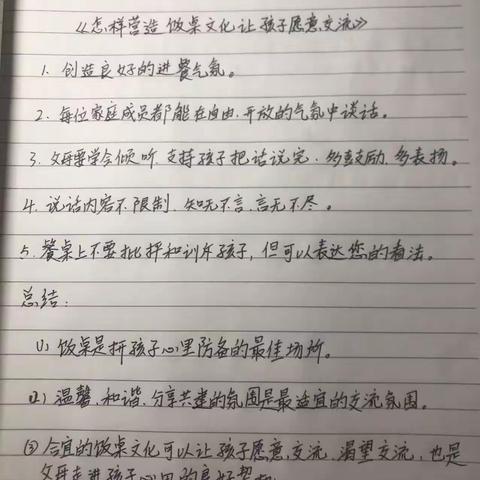 《怎样营造饭桌文化让孩子愿意交流》
1. 创造良好的进餐气氛。
2. 每位家庭成员都能在自由.开放的气氛中谈话。
3. 父母要学会倾听.支持孩子把话说完.多鼓励.多表扬。
4. 说话内容不限制.知无不言.言无不尽。
5. 餐桌上不要批评和训斥孩子,但可以表达您的看法。
总结:
(1) 饭桌是拆孩子心里防备的最佳场所。
(2) 温馨.和谐.分享共建的氛围是最适宜的交流氛围。
③ 合宜的饭桌文化可以让孩子愿意交流.渴望交流,也是
父母走进孩子心里的良好契机